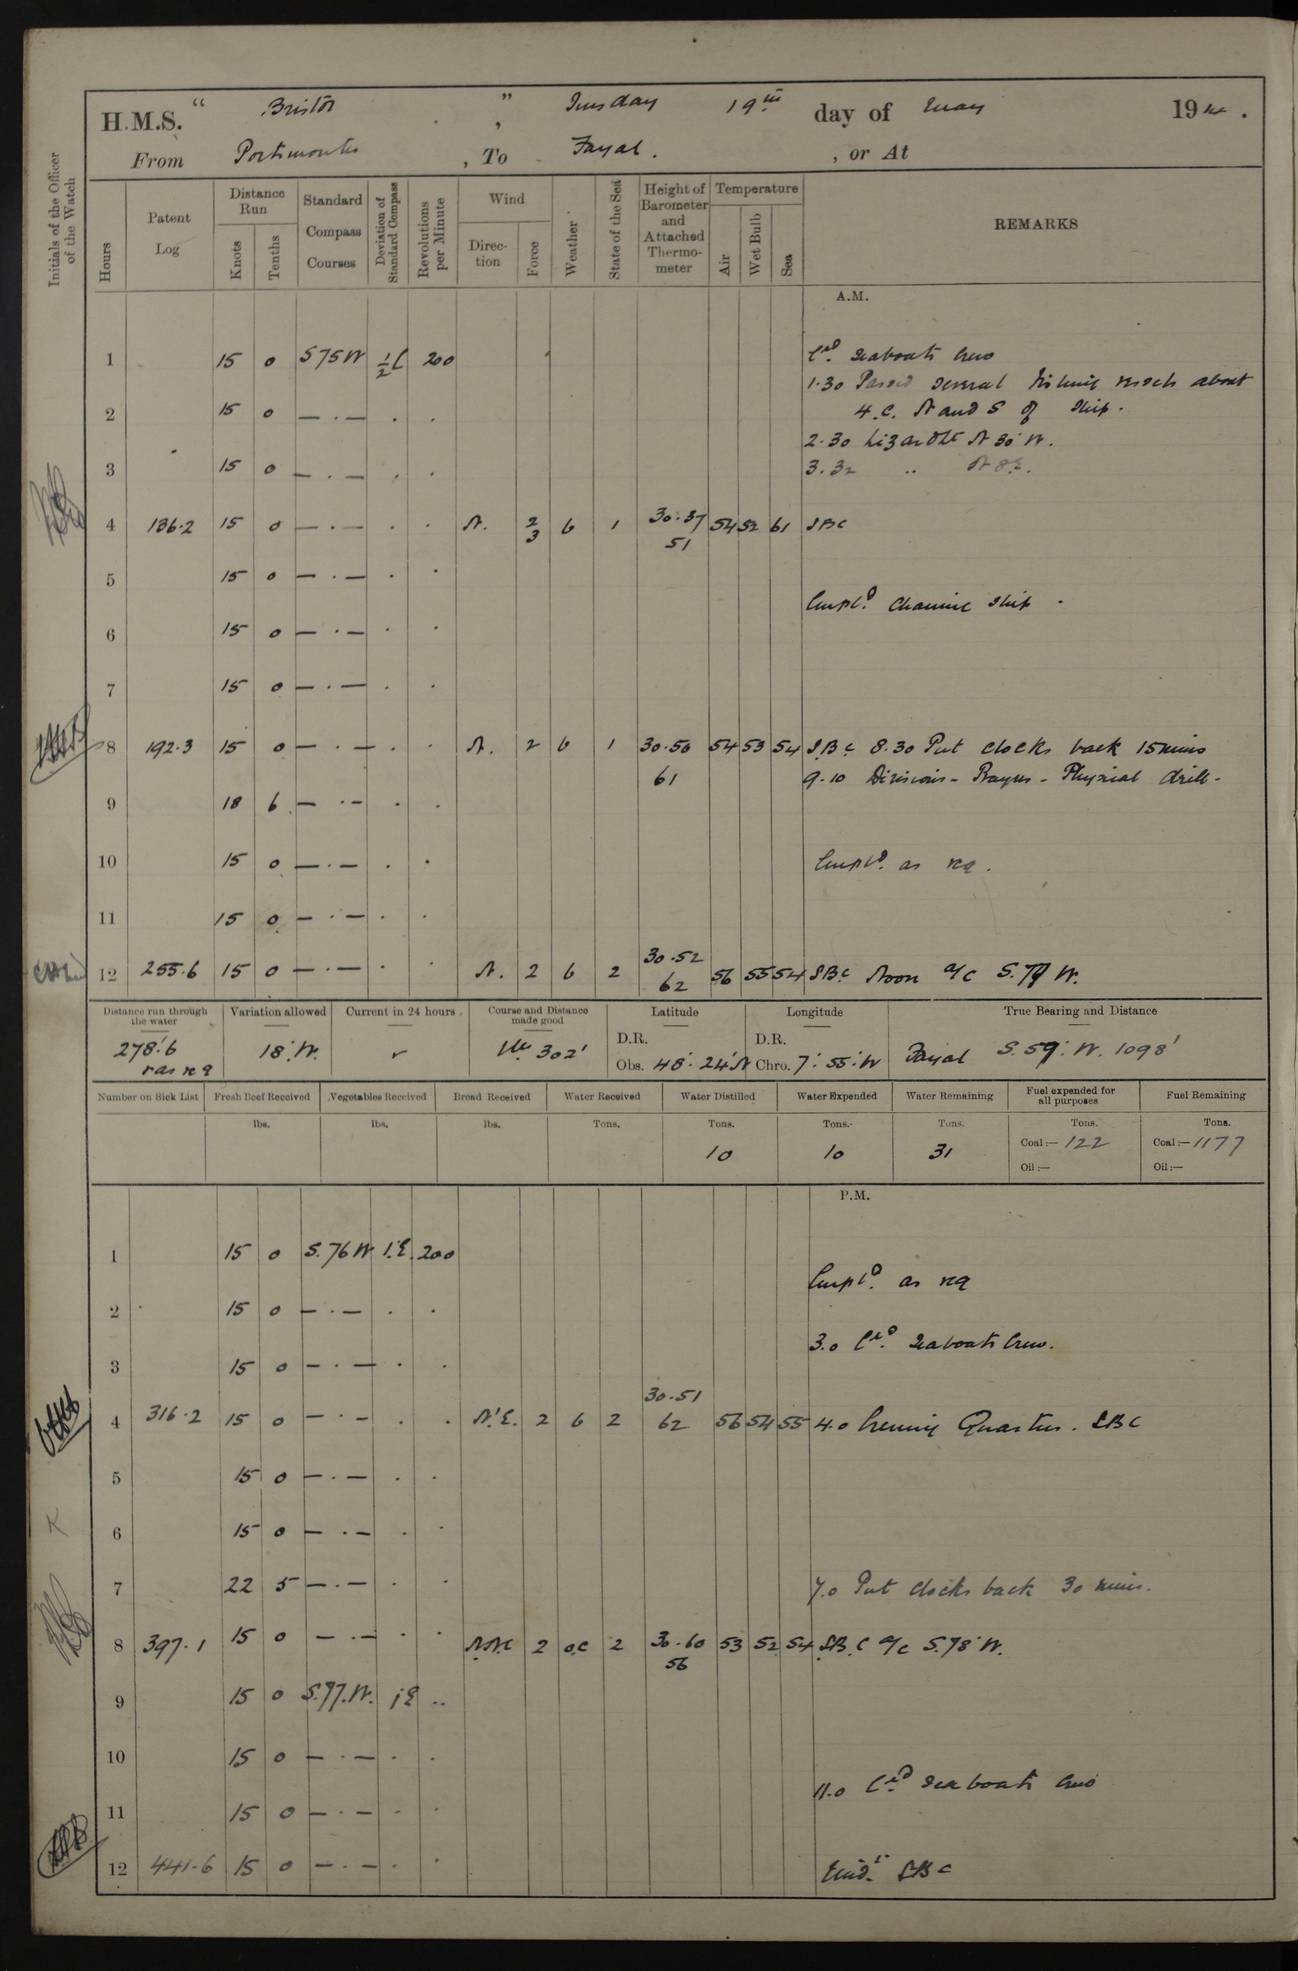 H.M.S. " Bristol " , Tuesday 19th day of May 1914.
From Portsmouth , To Fayal. , or At
Initials of the Officer of the Watch
Hours
Patent Log
Distance Run
Knots
Tenths
Standard Compass Courses
Deviation of Standard Compass
Revolutions per Minute
Wind
Direction
Force
Weather
State of the Sea
Height of Barometer and Attached Thermometer
Temperature
Air
Wet Bulb
Sea
REMARKS
A.M.
1 15 0 S 75 W ½ E 200 Crd. Seaboats Crew
1.30 Passed several fishing vessels about
2 15 0 — . — . . 4.c. N and S of ship.
2.30 Lizard Lt N 30° W.
3 15 0 — . — . . 3.32 .. N 8 E.
4 136.2 15 0 — . — . . N. 2 b 1 30.37 54 52 61 SBC
3 51
5 15 0 — . — . .
Empld. cleaning ship.
6 15 0 — . — . .
7 15 0 — . — . .
8 192.3 15 0 — . — . . N. 2 b 1 30.50 54 53 54 S.B.C. 8.30 Put clocks back 15 mins
61 9.10 Divisions - Prayers - Physical drill.
9 18 6 — . — . .
10 15 0 — . — . . Empld. as req.
11 15 0 — . — . .
12 255.6 15 0 — . — . . N. 2 b 2 30.52 56 55 54 SBC Noon a/c S. 77 W.
62
Distance run through the water
278.6
Variation allowed
18° W.
Current in 24 hours
Course and Distance made good
302'
Latitude
D.R.
Obs. 48° 24' N
Longitude
D.R.
Chro. 7° 55' W
True Bearing and Distance
Fayal S. 59° W. 1098'
Number on Sick List
Fresh Beef Received
lbs.
Vegetables Received
lbs.
Bread Received
lbs.
Water Received
Tons.
Water Distilled
Tons.
10
Water Expended
Tons.
10
Water Remaining
Tons.
31
Fuel expended for all purposes
Tons.
Coal :— 122
Oil :—
Fuel Remaining
Tons.
Coal :— 1177
Oil :—
P.M.
1 15 0 S. 76 W 1° E. 200
Empld. as req
2 15 0 — . — . .
3.0 Crd. Seaboats Crew.
3 15 0 — . — . .
4 316.2 15 0 — . — . . N'E. 2 b 2 30.51 56 54 55 4.0 Evening Quarters. SBC
62
5 15 0 — . — . .
6 15 0 — . — . .
7 22 5 — . — . . 7.0 Put clocks back 30 mins.
8 397.1 15 0 — . — . . NNE 2 o.c 2 30.60 53 52 54 S.B.C a/c S. 78° W.
56
9 15 0 S. 77. W. 1 E ..
10 15 0 — . — . .
11.0 Crd Seaboats Crew
11 15 0 — . — . .
12 441.6 15 0 — . — . . Midt. SBC